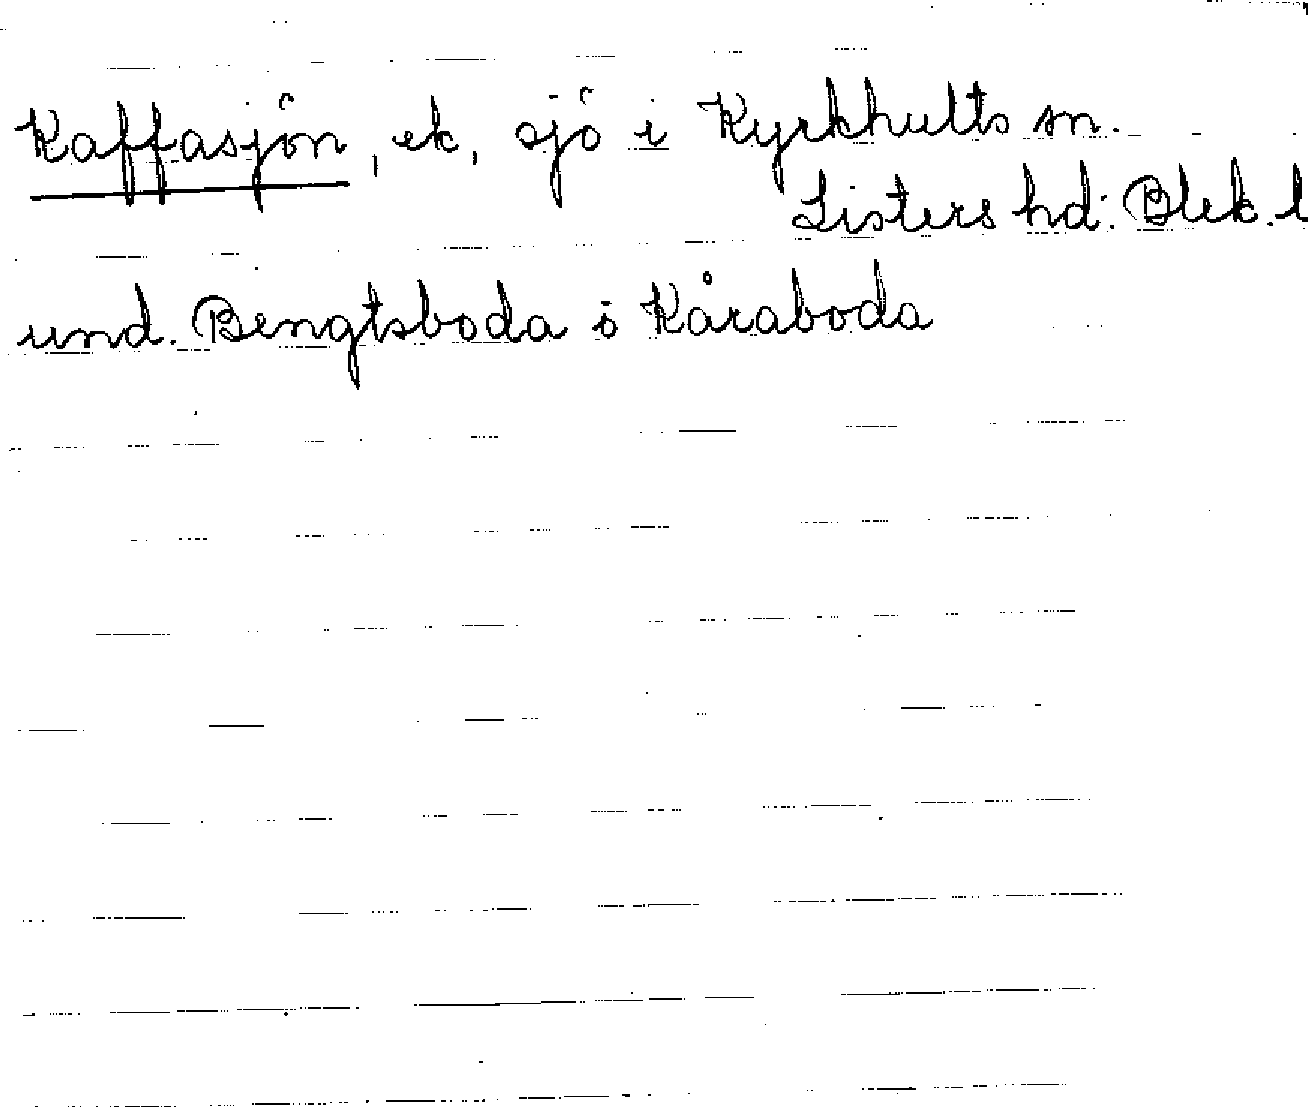 Kaffasjön, ek, sjö i Kyrkhults sn.
Listers hd. Blek. l
und. Bengtsboda i Kåraboda